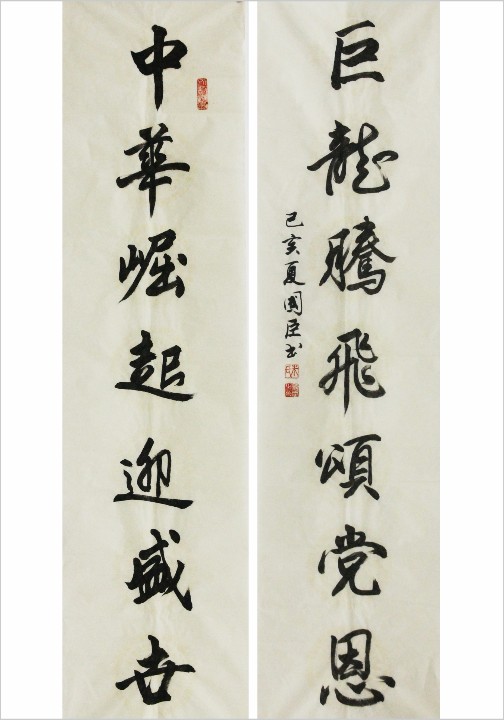 巨龍騰飛頌党恩
己亥夏國臣书
中華崛起迎盛世